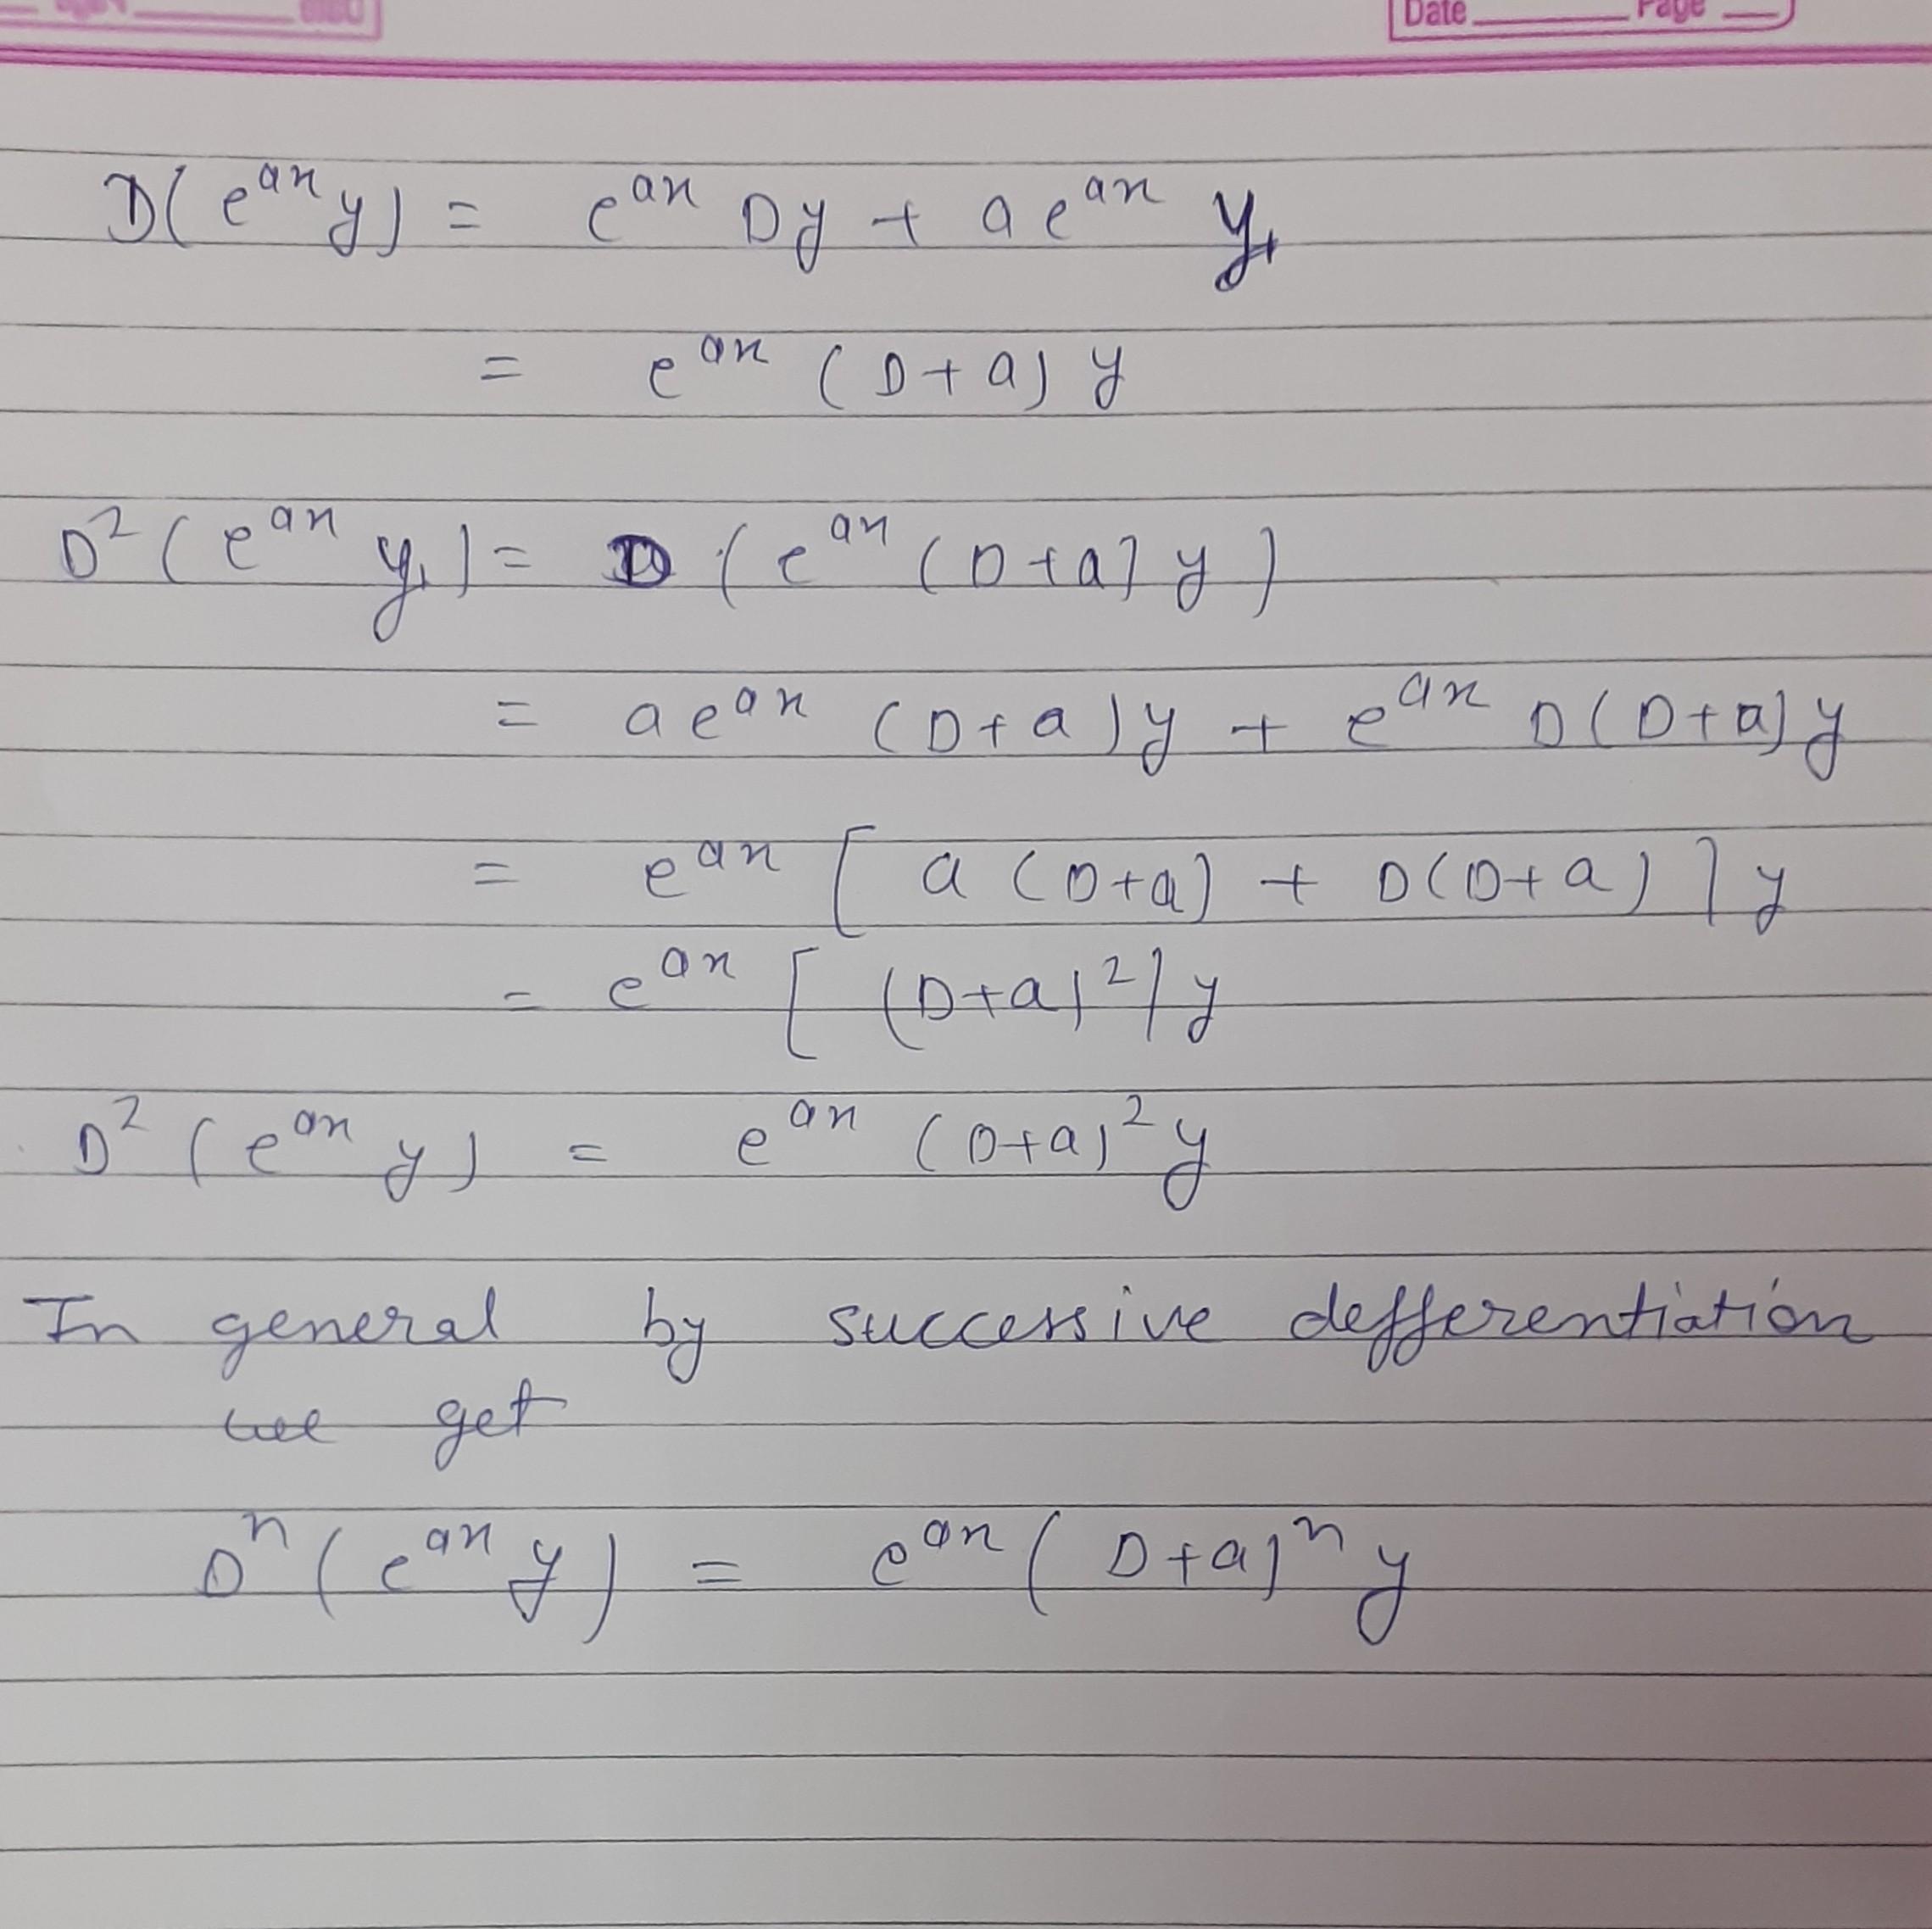 Date Page
D(e^{ax} y) = e^{ax} Dy + a e^{ax} y_1
= e^{ax} (D+a) y
D^2 (e^{ax} y_1) = D (e^{ax} (D+a) y)
= a e^{ax} (D+a) y + e^{ax} D(D+a) y
= e^{ax} [ a (D+a) + D(D+a) ] y
= e^{ax} [ (D+a)^2 ] y
D^2 (e^{ax} y) = e^{ax} (D+a)^2 y
In general by successive defferentiation
we get
D^n (e^{ax} y) = e^{ax} (D+a)^n y